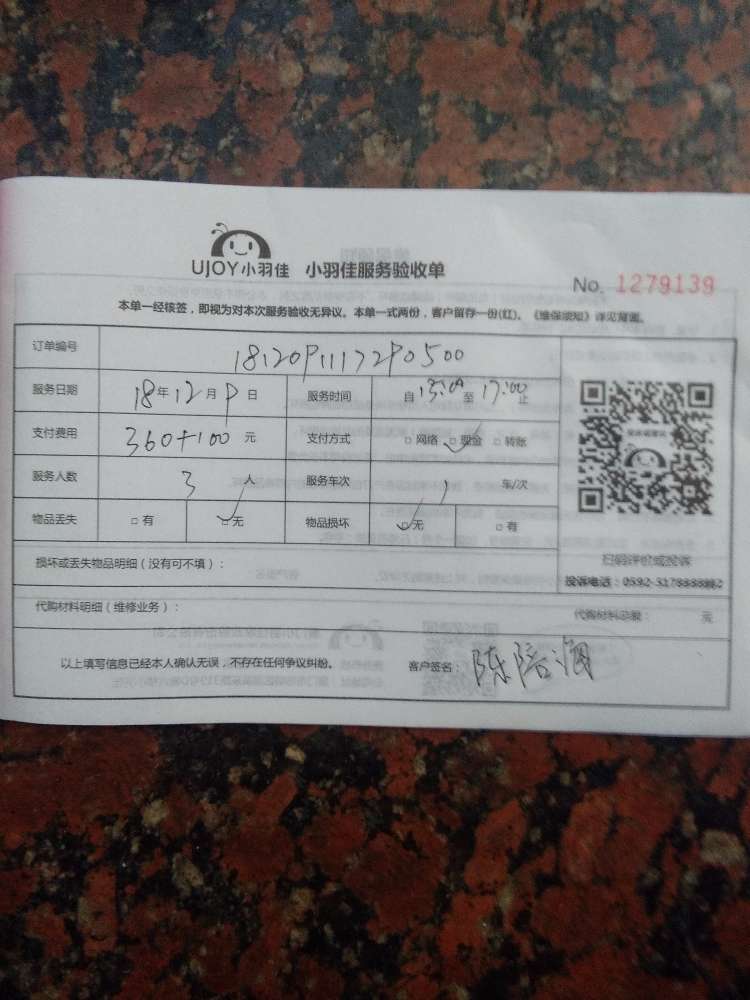 UJOY小羽佳 小羽佳服务验收单
No. 1279139
本单一经核签，即视为对本次服务验收无异议。本单一式两份，客户留存一份(红)。《维保须知》详见背面。
订单编号 1812091117290500
服务日期 18年12月9日 服务时间 自13:00至17:00止
支付费用 360+100 元 支付方式 □网络 □现金 □转账
服务人数 3 人 服务车次 1 车/次
物品丢失 □有 □无 物品损坏 □无 □有
扫码评价或投诉
损坏或丢失物品明细（没有可不填）：
投诉电话：0592-3178
代购材料明细（维修业务）： 代购材料总额： 元
以上填写信息已经本人确认无误，不存在任何争议纠纷。 客户签名：陈陪